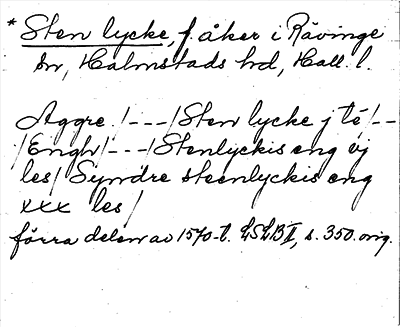 * Sten lycke, f. åker i Rävinge
sn, Halmstads hd, Hall. l.
Aggre /---/ Sten lycke j té /--
/Engh/---/ Stenlyckis eng vj
les/ Syndre steenlyckis eng
xxx les/
förra delen av 1570-t. LSLB II, s. 350. orig.